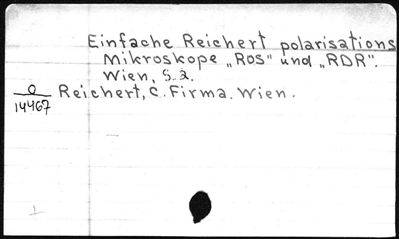 Einfache Reichert polarisations
Mikroskope „ROS" und „RDR".
Wien, s.a.
O Reichert, C. Firma. Wien.
14467